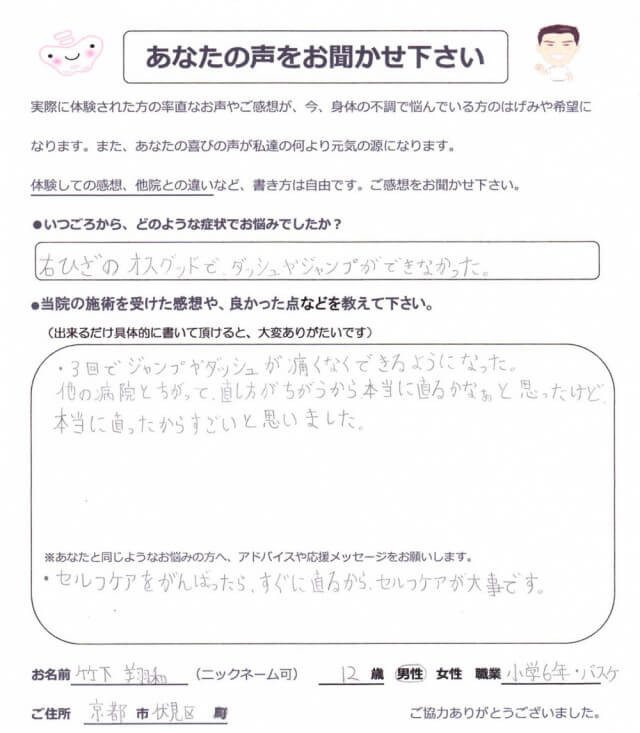 あなたの声をお聞かせ下さい
実際に体験された方の率直なお声やご感想が、今、身体の不調で悩んでいる方のはげみや希望に
なります。また、あなたの喜びの声が私達の何より元気の源になります。
体験しての感想、他院との違いなど、書き方は自由です。ご感想をお聞かせ下さい。
●いつごろから、どのような症状でお悩みでしたか？
右ひざのオスグッドで、ダッシュやジャンプができなかった。
●当院の施術を受けた感想や、良かった点などを教えて下さい。
（出来るだけ具体的に書いて頂けると、大変ありがたいです）
・3回でジャンプやダッシュが痛くなくできるようになった。
他の病院とちがって、直し方がちがうから本当に直るかなぁと思ったけど、
本当に直ったからすごいと思いました。
※あなたと同じようなお悩みの方へ、アドバイスや応援メッセージをお願いします。
・セルフケアをがんばったら、すぐに直るから、セルフケアが大事です。
お名前 竹下 翔和 （ニックネーム可） 12 歳 男性 女性 職業 小学6年・バスケ
ご住所 京都 市 伏見区 町 ご協力ありがとうございました。